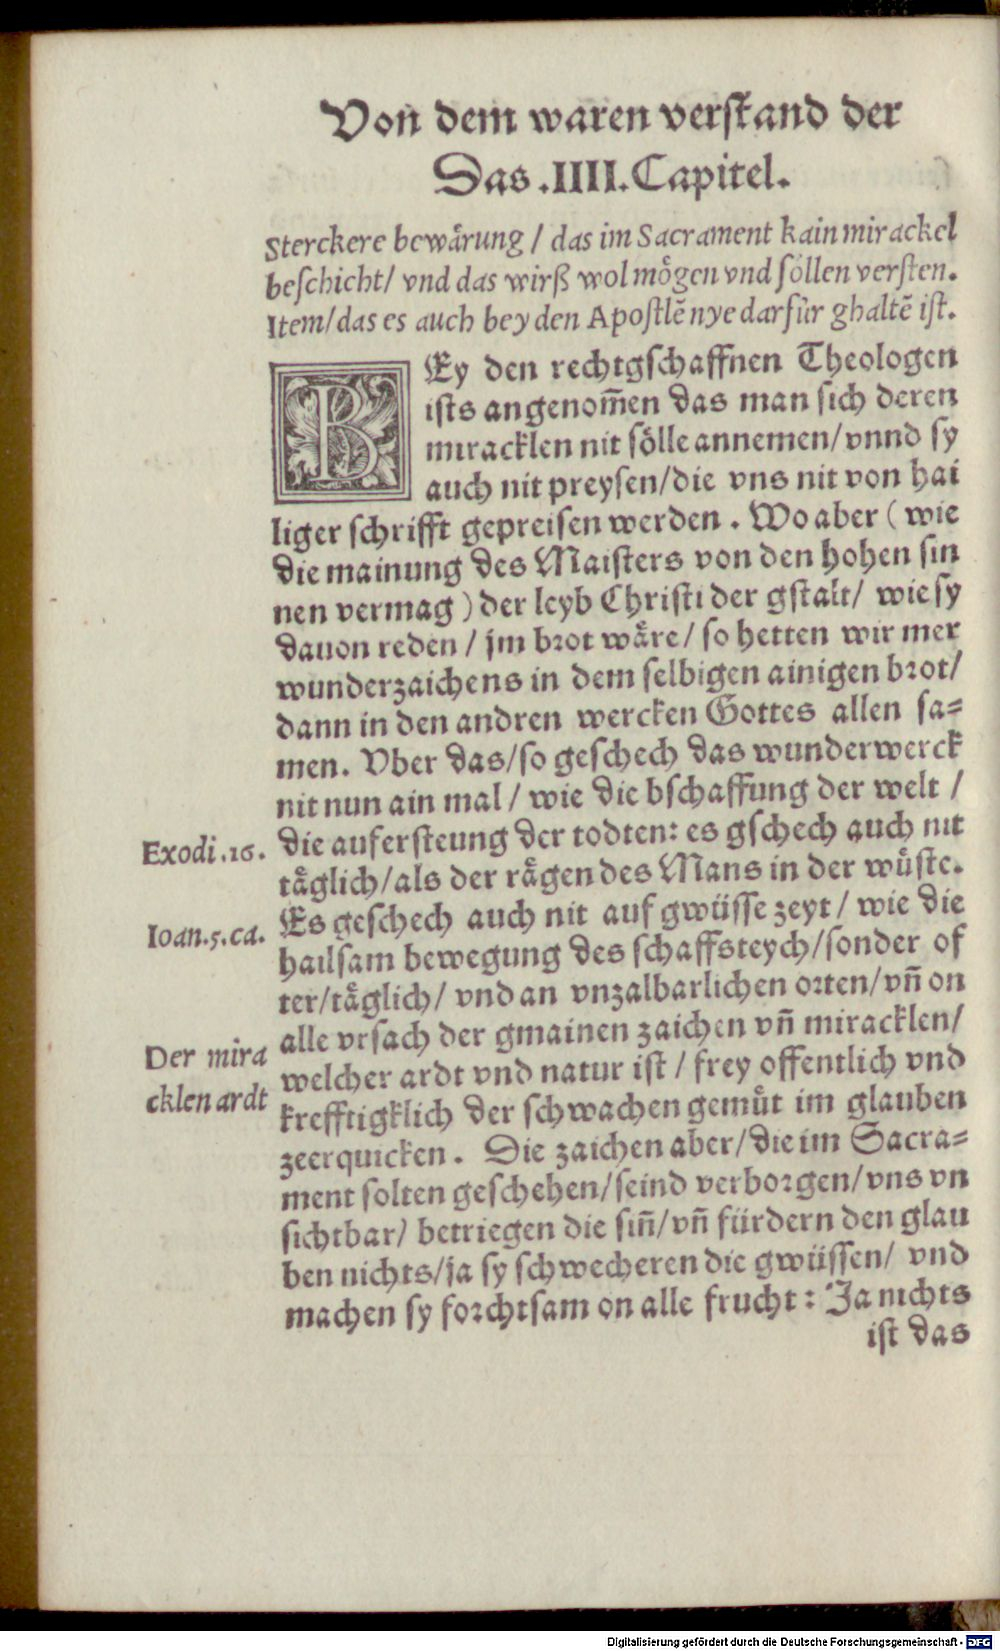 Von dem waren verstand der
Das .IIII. Capitel.
Sterckere bewårung / das im Sacrament kain mirackel
beschicht/ vnd das wirß wol mögen vnd söllen versten.
Item/das es auch bey den Apostlẽ nye darfür ghaltẽ ist.
BEy den rechtgschaffnen Theologen
ists angenom̃en das man sich deren
miracklen nit sölle annemen/vnnd sy
auch nit preysen/die vns nit von hai
liger schrifft gepreisen werden . Wo aber ( wie
die mainung des Maisters von den hohen sin
nen vermag ) der leyb Christi der gstalt/ wie sy
dauon reden / jm brot wåre/ so hetten wir mer
wunderzaichens in dem selbigen ainigen brot/
dann in den andren wercken Gottes allen sa=
men. Vber das/so geschech das wunderwerck
nit nun ain mal / wie die bschaffung der welt /
Exodi .16.
die aufersteung der todten: es gschech auch nit
tåglich/als der rågen des Mans in der wůste.
Ioan.5.ca.
Es geschech auch nit auf gwüsse zeyt / wie die
hailsam bewegung des schaffsteych/sonder of
ter/tåglich/ vnd an vnzalbarlichen orten/vñ on
alle vrsach der gmainen zaichen vñ miracklen/
Der mira
cklen ardt
welcher ardt vnd natur ist / frey offentlich vnd
krefftigklich der schwachen gemůt im glauben
zeerquicken . Die zaichen aber/die im Sacra=
ment solten geschehen/seind verborgen/vns vn
sichtbar/ betriegen die siñ/vñ fürdern den glau
ben nichts/ja sy schwecheren die gwüssen/ vnd
machen sy forchtsam on alle frucht : Ja nichts
ist das
Digitalisierung gefördert durch die Deutsche Forschungsgemeinschaft - DFG